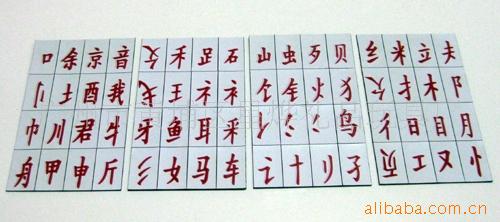 口余京音
刂土酉我
巾川君牛
舟甲申斤
攵禾足石
戋王礻衤
牙鱼耳采
彡女马车
山虫歹贝
亻钅火犭
亻氵冫鸟
讠十刂子
纟米立夫
扌木阝
彳日目月
页工又忄
alibaba.com.cn